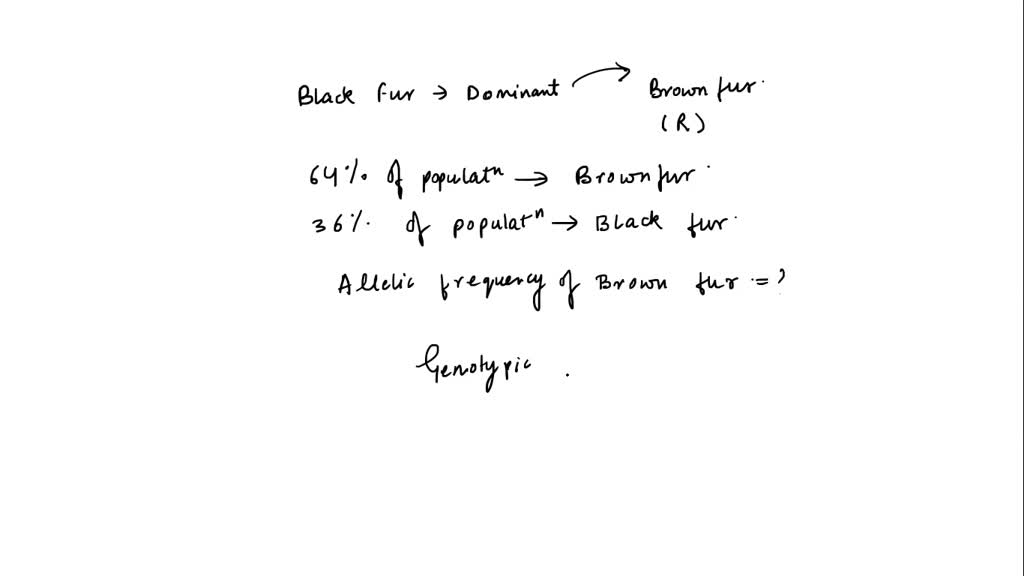 Black fur → Dominant → Brown fur.
(R)
64% of populatⁿ → Brown fur.
36% of populatⁿ → Black fur.
Allelic frequency of Brown fur = ?
Genotypic .